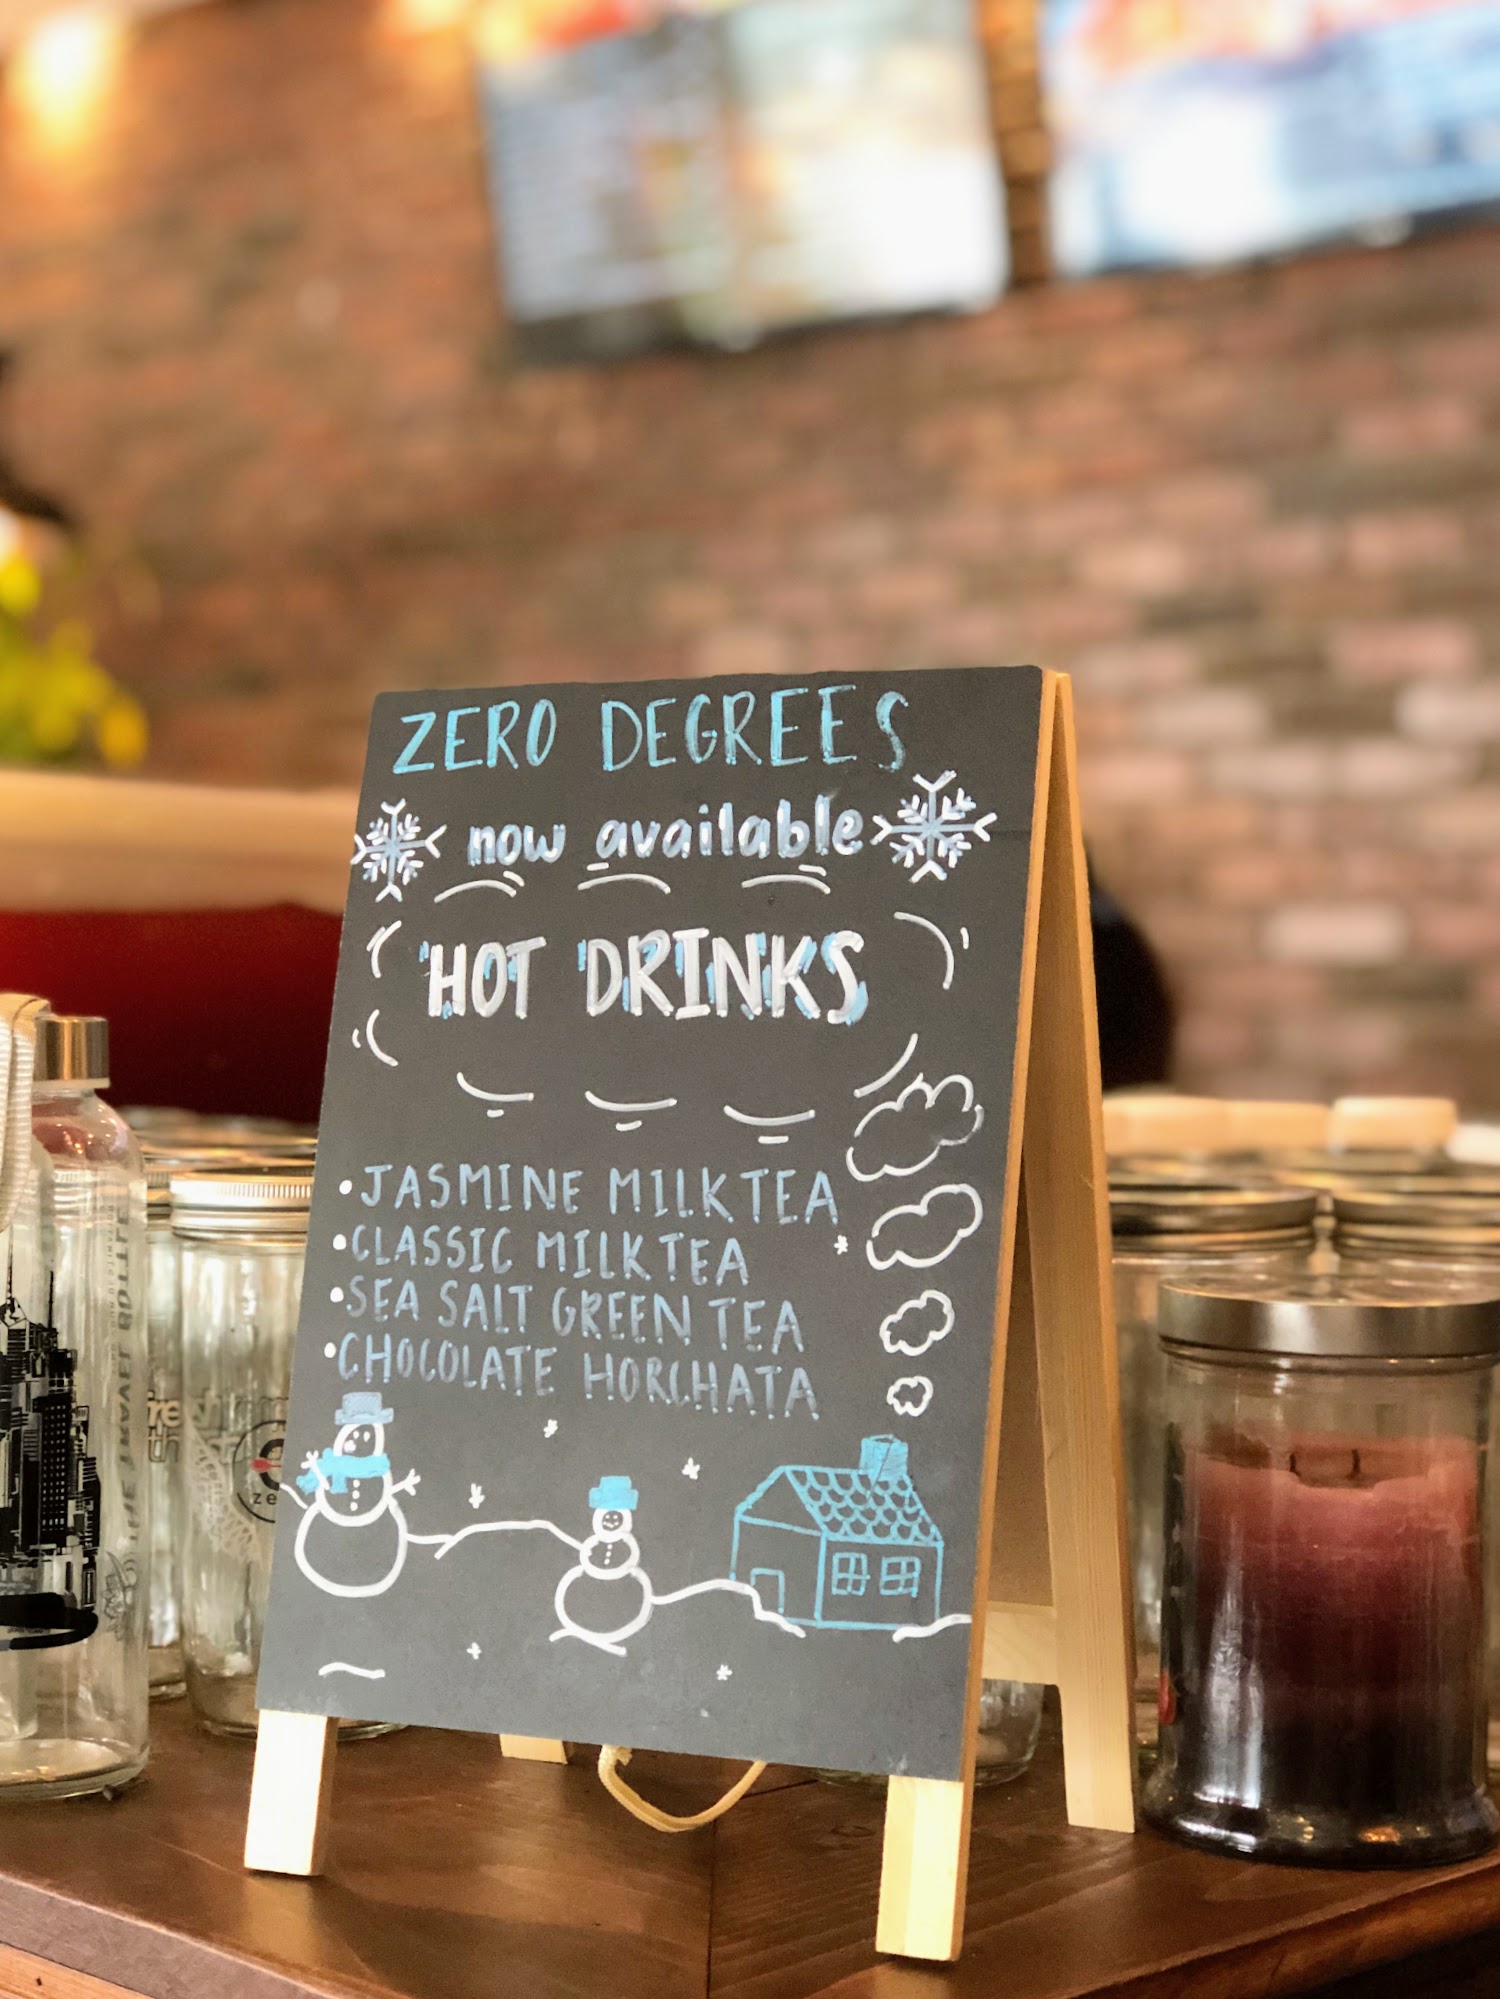 ZERO DEGREES
now available
HOT DRINKS
• JASMINE MILK TEA
• CLASSIC MILK TEA
• SEA SALT GREEN TEA
• CHOCOLATE HORCHATA
THE TRAVEL BOTTLE